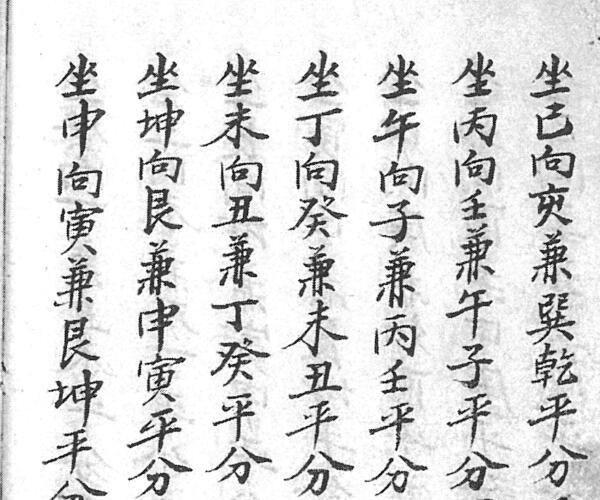 坐巳向亥兼巽乾平分
坐丙向壬兼午子平分
坐午向子兼丙壬平分
坐丁向癸兼未丑平分
坐未向丑兼丁癸平分
坐坤向艮兼申寅平分
坐申向寅兼艮坤平分